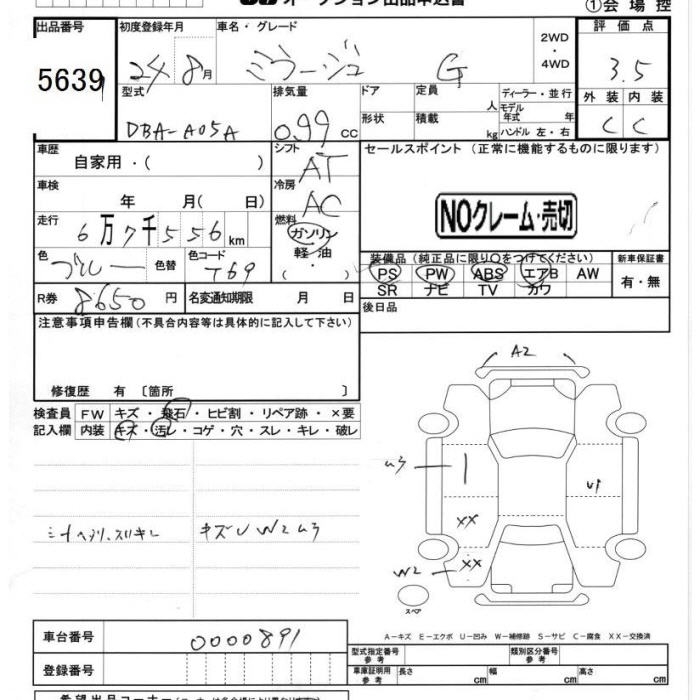 オークション出品申込書
①会場控
出品番号
5639
初度登録年月
24 8月
車名・グレード
ミラージュ G
2WD
・
4WD
評価点
3.5
型式
DBA-A05A
排気量
0.99 cc
ドア
形状
定員 人
積載 kg
ディーラー・並行
モデル
年式 年
ハンドル 左・右
外装 内装
C C
車歴
自家用・( )
シフト
AT
セールスポイント (正常に機能するものに限ります)
車検
年 月( 日)
冷房
AC
NOクレーム・売切
走行
6万7千556km
燃料
ガソリン
軽油
( ・ )
色
ブルー
色替
色コード
T69
装備品 (純正品に限り○をつけてください)
PS PW ABS エアB AW
SR ナビ TV カワ
新車保証書
有・無
R券 8650円
名変通知期限 月 日
後日品
注意事項申告欄 (不具合内容等は具体的に記入して下さい)
修復歴 有 〔箇所 〕
検査員
記入欄
FW キズ・飛石・ヒビ割・リペア跡・×要
内装 キズ・汚レ・コゲ・穴・スレ・キレ・破レ
A2
ムラ
U1
XX
W2 XX
スペア
キズU W2ムラ
A-キズ E-エクボ U-凹み W-補修跡 S-サビ C-腐食 XX-交換済
車台番号
0000891
登録番号
型式指定番号
参考
類別区分番号
参考
車庫証明用
参考
長さ cm 幅 cm 高さ cm
希望出品コーナー